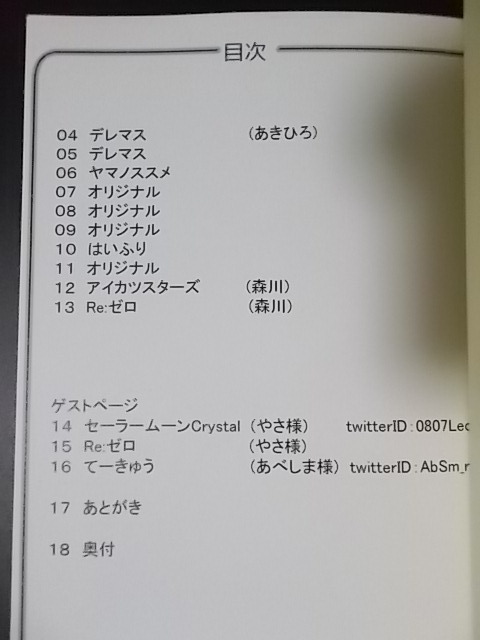 目次
04 デレマス (あきひろ)
05 デレマス
06 ヤマノススメ
07 オリジナル
08 オリジナル
09 オリジナル
10 はいふり
11 オリジナル
12 アイカツスターズ (森川)
13 Re:ゼロ (森川)
ゲストページ
14 セーラームーンCrystal (やさ様) twitterID:0807Lec
15 Re:ゼロ (やさ様)
16 てーきゅう (あべしま様) twitterID:AbSm_r
17 あとがき
18 奥付